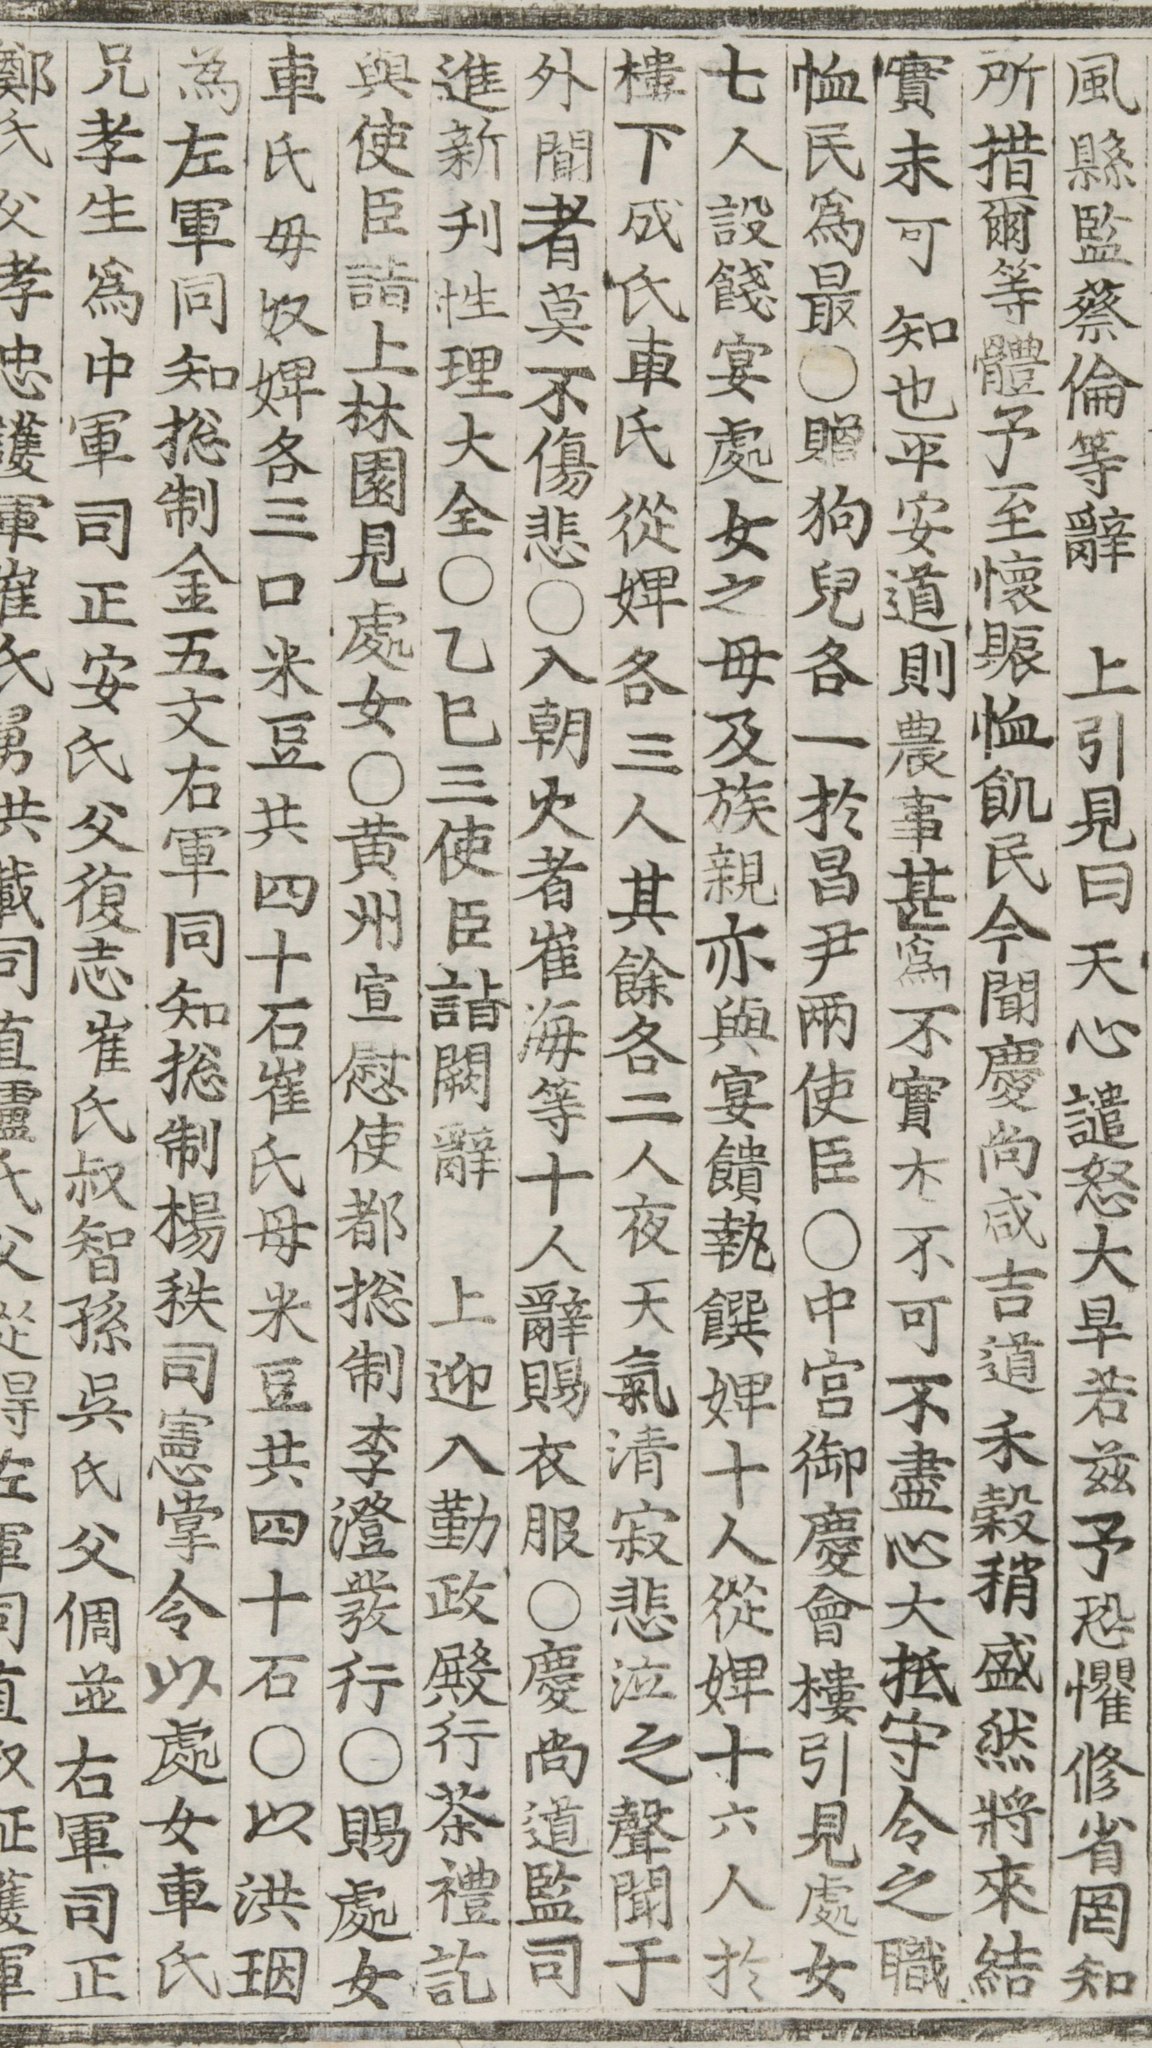 風縣監蔡倫等辭　上引見曰天心譴怒大旱若玆予恐懼修省罔知
所措爾等體予至懷賑恤飢民今聞慶尙咸吉道禾穀稍盛然將來結
實未可知也平安道則農事甚爲不實尤不可不盡心大抵守令之職
恤民爲最○贈狗兒各一於昌尹兩使臣○中宮御慶會樓引見處女
七人設餞宴處女之母及族親亦與宴饋執饌婢十人從婢十六人於
樓下成氏車氏從婢各三人其餘各二人夜天氣清寂悲泣之聲聞于
外聞者莫不傷悲○入朝火者崔海等十人辭賜衣服○慶尙道監司
進新刋性理大全○乙巳三使臣詣闕辭　上迎入勤政殿行茶禮訖
與使臣詣上林園見處女○黃州宣慰使都摠制李澄發行○賜處女
車氏母奴婢各三口米豆共四十石崔氏母米豆共四十石○以洪㻒
為左軍同知摠制金五文右軍同知摠制楊秩司憲掌令以處女車氏
兄孝生爲中軍司正安氏父復志崔氏叔智孫吳氏父倜並右軍司正
鄭氏父孝忠護軍崔氏舅洪戩司直盧氏父從得左軍司直叔征護軍